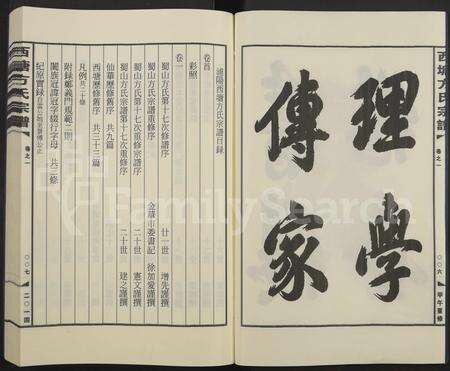 西塘方氏宗譜
卷之一
理學
傳家
〇〇六
甲午重修
浦陽西塘方氏宗譜目錄
卷首
彩照
卷一
蜀山方氏第十七次修譜序 廿一世 增先撰
蜀山方氏宗譜第十七次重修序 金華市委書記 徐加愛謹撰
蜀山方氏第十七次重修宗譜序 二十世 憲文謹撰
蜀山方氏宗譜第十七次重修序 二十世 建之謹撰
仙華歷修舊序 共九篇
西塘歷修舊序 共三十三篇
凡例 共二十條
附錄鄭義門規範二則
闔族冠諱冠字續行字母 共二條
紀原實錄
西塘方氏宗譜
卷之一
〇〇七
二〇一四
FamilySearch